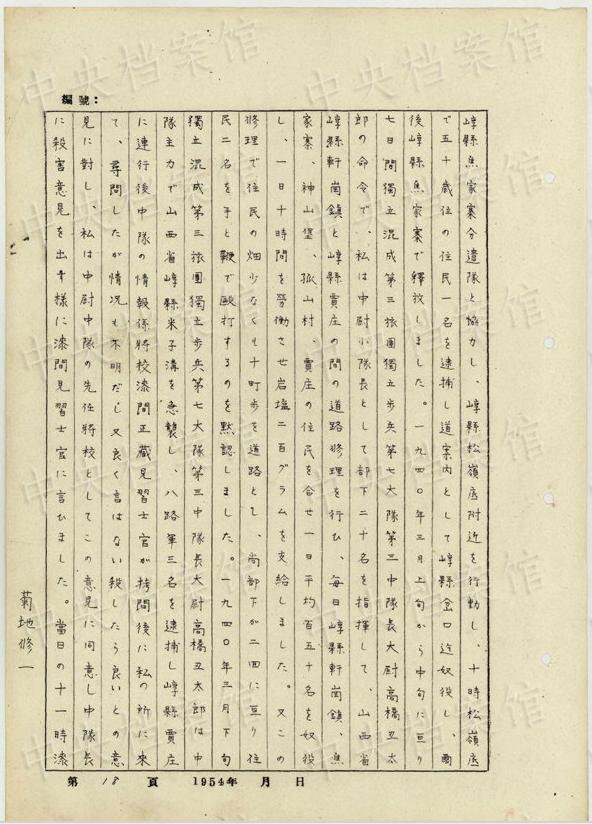 編號：
崞縣焦家寨分遣隊と協力し、崞縣松嶺底附近を行動し、十時松嶺底
で五十歳位の住民一名を逮捕し道案内として崞縣金口迄奴役し、爾
後崞縣焦家寨で釋放しました。一九四〇年三月上旬から中旬に亘り
七日間獨立混成第三旅團獨立步兵第七大隊第三中隊長大尉高橋丑太
郎の命令で、私は中尉小隊長として部下二十名を指揮して、山西省
崞縣軒崗鎮と崞縣賈庄の間の道路修理を行ひ、每日崞縣軒崗鎮、焦
家寨、神山堡、孤山村、賈庄の住民を合せ一日平均百五十名を奴役
し、一日十時間を勞働させ岩塩二百グラムを支給しました。又この
修理で住民の畑少なくも十町步を道路とし、尚部下が二回に亘り住
民二名を手と鞭で毆打するのを默認しました。一九四〇年三月下旬
獨立混成第三旅團獨立步兵第七大隊第三中隊長大尉高橋丑太郎は中
隊主力で山西省崞縣米子溝を急襲し、八路軍三名を逮捕し崞縣賈庄
に連行後中隊の情報係將校漆間正藏見習士官が拷問後に私の所に來
て、尋問したが情況も不明だし又良く言はない殺したら良いとの意
見に對し、私は中尉中隊の先任將校としてこの意見に同意し中隊長
に殺害意見を出す様に漆間見習士官に言ひました。當日の十一時漆
菊地修一
第 18 頁 1954年 月 日
中央档案馆